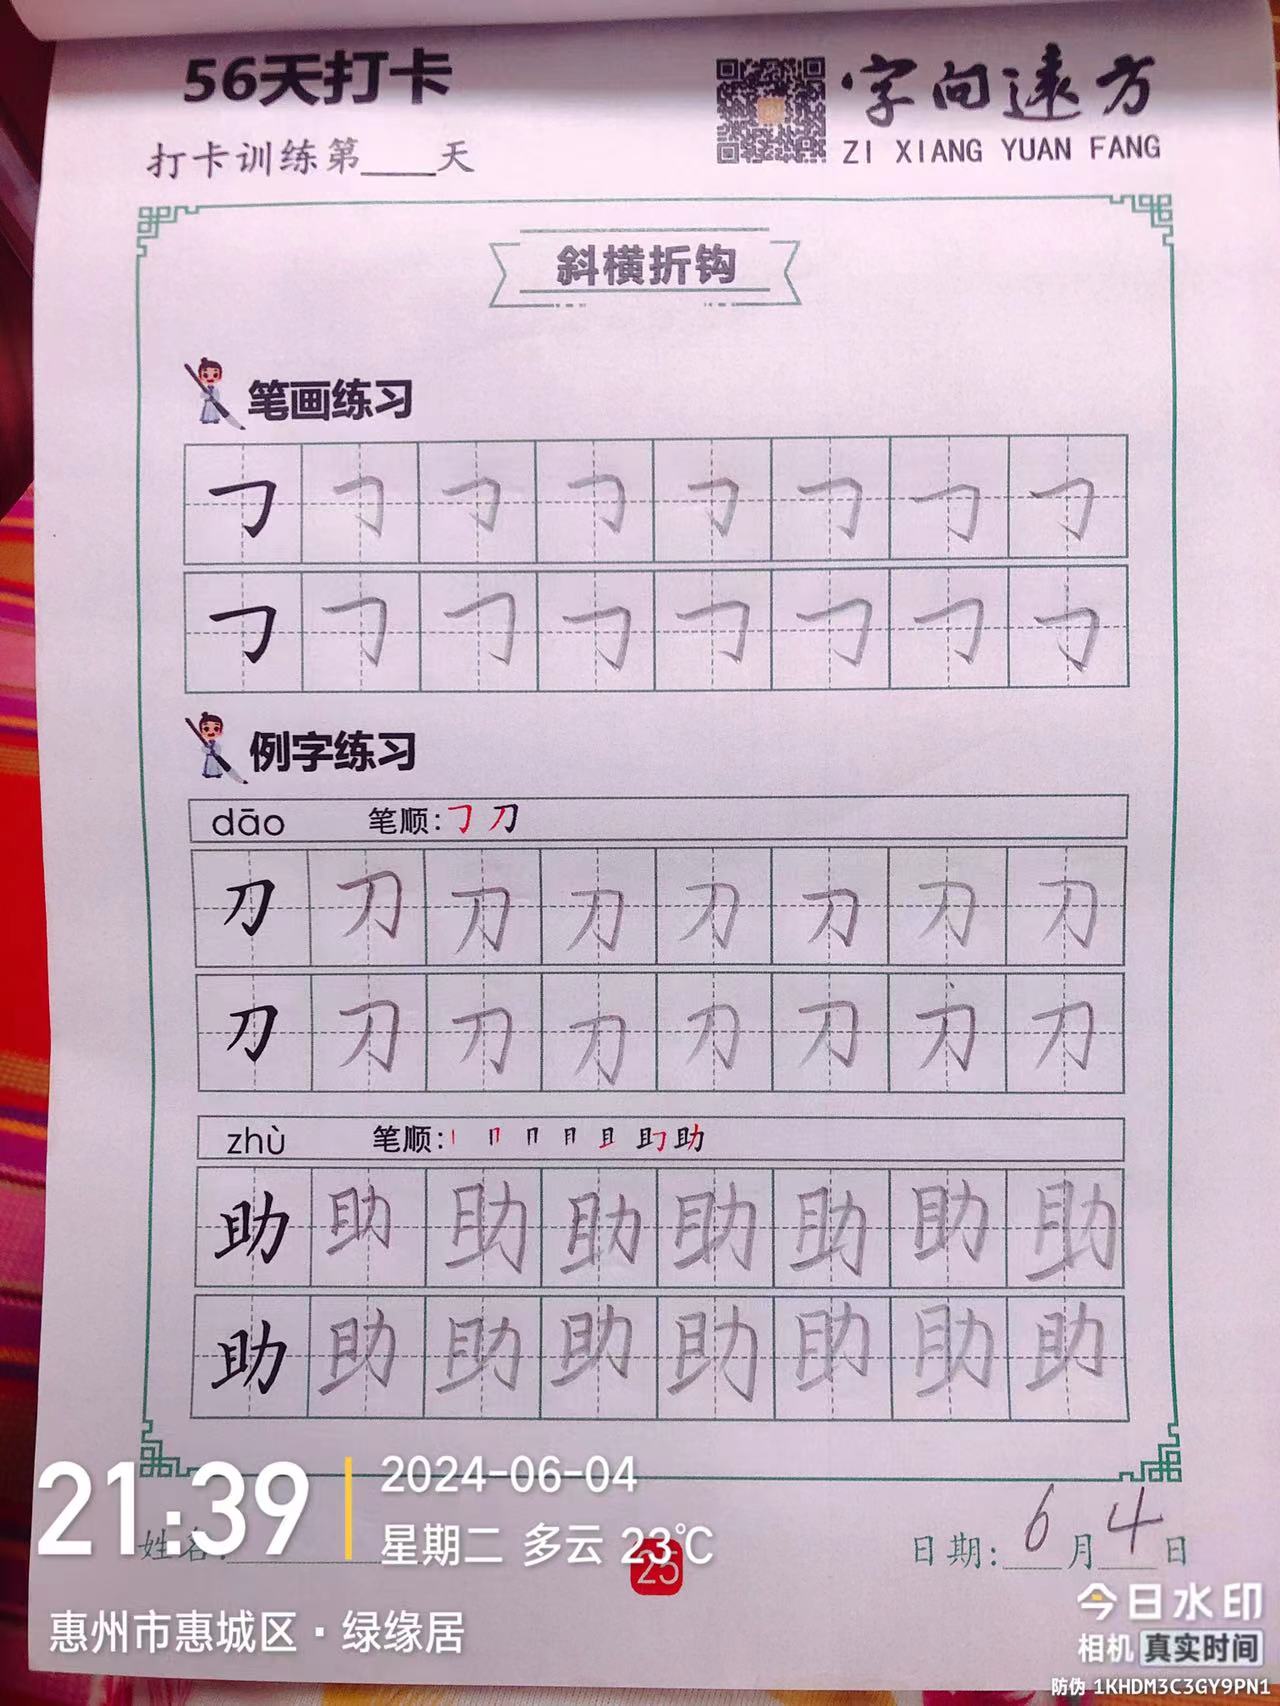 56天打卡
字向遠方
ZI XIANG YUAN FANG
打卡训练第____天
斜横折钩
笔画练习
㇆ ㇆ ㇆ ㇆ ㇆ ㇆ ㇆ ㇆
㇆ ㇆ ㇆ ㇆ ㇆ ㇆ ㇆ ㇆
例字练习
dāo 笔顺:㇆ 刀
刀 刀 刀 刀 刀 刀 刀 刀
刀 刀 刀 刀 刀 刀 刀 刀
zhù 笔顺:丨 冂 冂 月 且 助 助
助 助 助 助 助 助 助 助
助 助 助 助 助 助 助 助
21:39
2024-06-04
星期二 多云 23℃
姓名:
25
日期: 6 月 4 日
惠州市惠城区·绿缘居
今日水印
相机 真实时间
防伪 1KHDM3C3GY9PN1